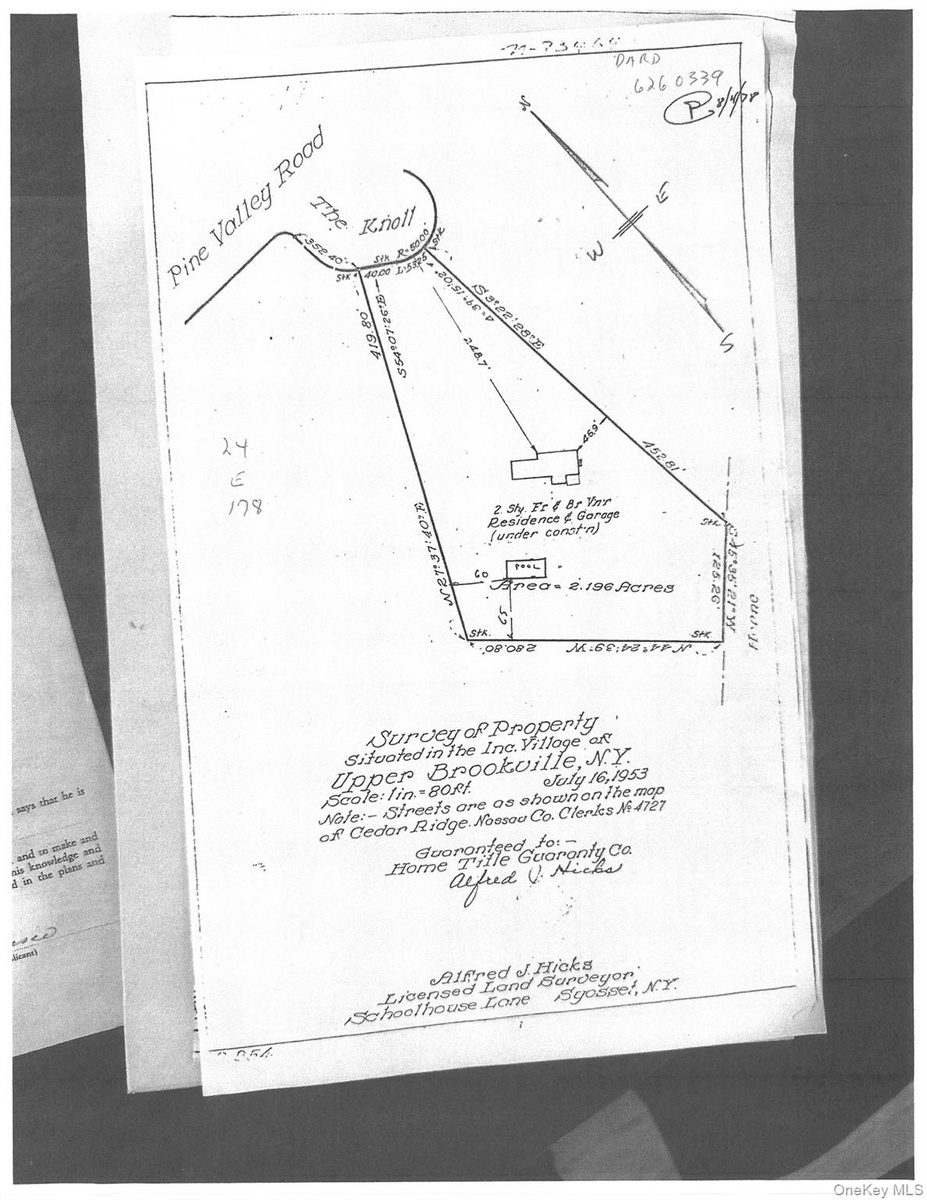 DARD
6260339
P 8/4/78
N
E
W
S
Pine Valley Road
The Knoll
352.40'
Stk
Stk
40.00
R=50.00'
L=53.25
Stk
419.80'
S54°07'26"E
Δ=34°15'02"
S 3°22'28"E
248.7'
46.9'
452.81'
24
E
178
2 Sty. Fr & Br Vnr
Residence & Garage
(under const'n)
POOL
60
Area = 2.196 Acres
65
N27°37'40"E
Stk.
S45°35'21"W
125.26'
Stk.
Stk.
280.80'
N 44°24'39"W
Survey of Property
Situated in the Inc. Village of
Upper Brookville, N.Y.
Scale: 1in.=80Ft.
July 16, 1953
Note:- Streets are as shown on the map
of Cedar Ridge. Nassau Co. Clerks No 4727
Guaranteed to:-
Home Title Guaranty Co.
Alfred J. Hicks
Alfred J. Hicks
Licensed Land Surveyor
Schoolhouse Lane Syosset, N.Y.
says that he is
and to make and
his knowledge and
d in the plans and
licant)
OneKey MLS